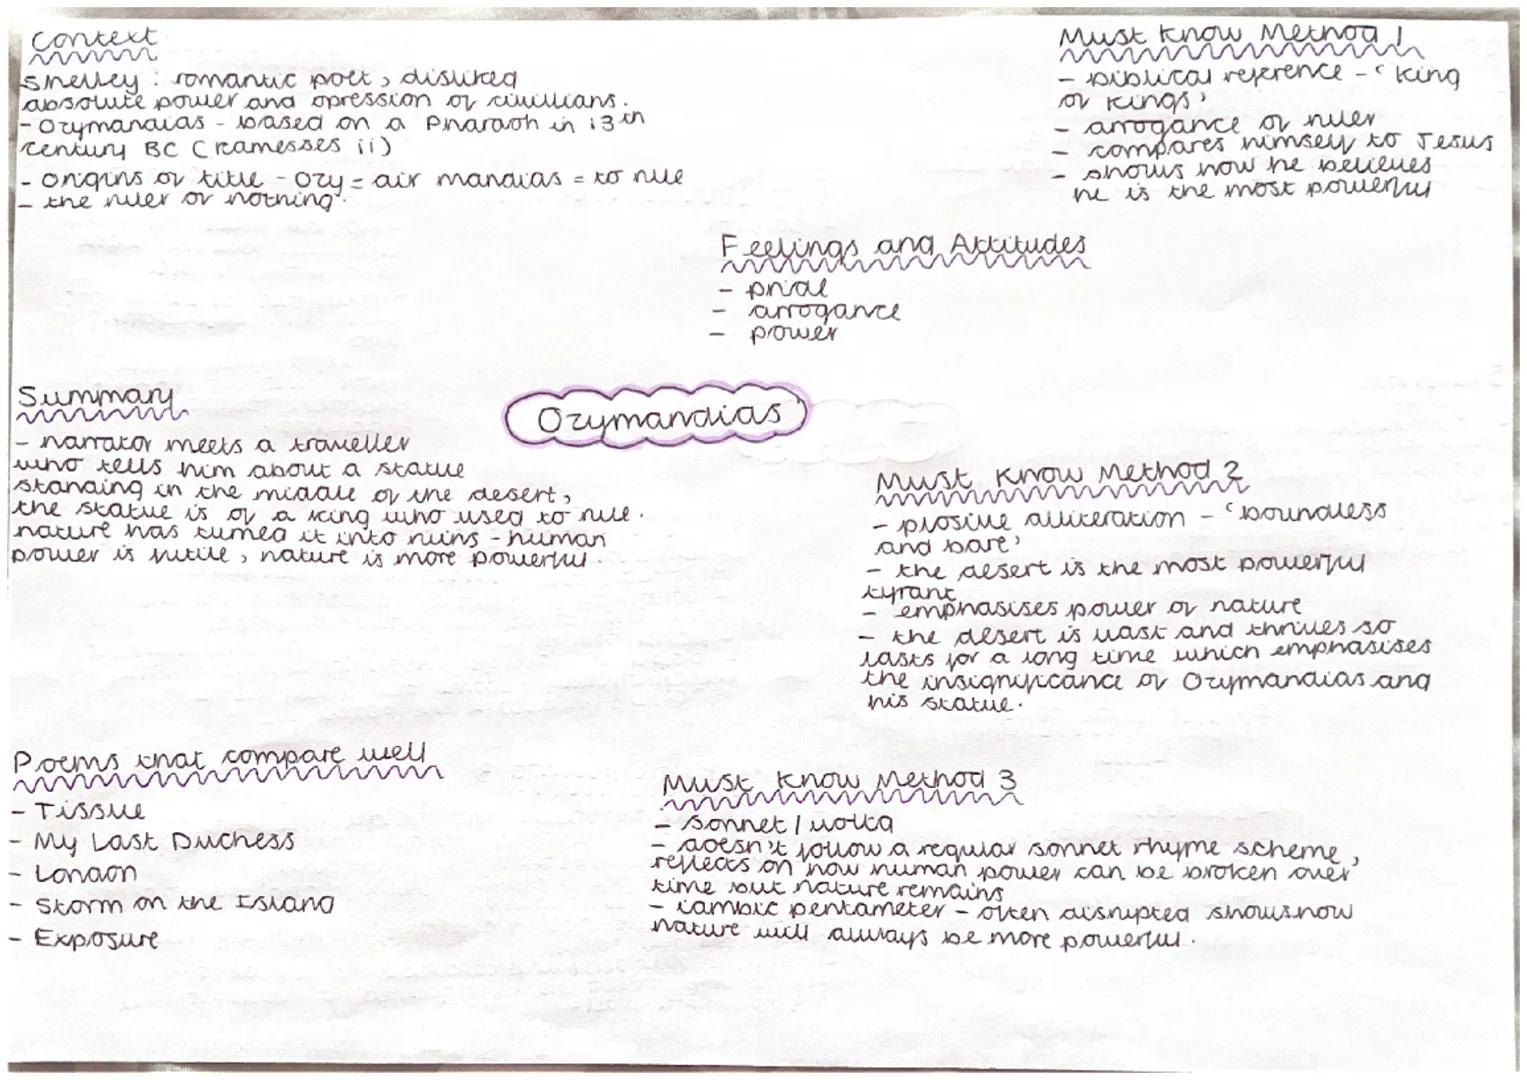 Context
Shelley: romantic poet, disliked
absolute power and opression of civillians.
- Ozymandias - based on a Pharaoh in 13th
century BC (Ramesses ii)
- origins of title - ozy = air mandias = to rule
- the ruler of nothing.
Must Know Method 1
- biblical reference - 'king
of kings'
- arrogance of ruler
- compares himself to Jesus
- shows how he believes
he is the most powerful
Feelings and Attitudes
- pride
- arrogance
- power
Summary
- narrator meets a traveller
who tells him about a statue
standing in the middle of the desert,
the statue is of a king who used to rule.
nature has turned it into ruins - human
power is futile, nature is more powerful.
Ozymandias
Must Know Method 2
- plosive alliteration - 'boundless
and bare'
- the desert is the most powerful
tyrant
- emphasises power of nature
- the desert is vast and thrives so
lasts for a long time which emphasises
the insignificance of Ozymandias and
his statue.
Poems that compare well
- Tissue
- My Last Duchess
- London
- Storm on the Island
- Exposure
Must Know Method 3
- sonnet / volta
- doesn't follow a regular sonnet rhyme scheme,
reflects on how human power can be broken over
time but nature remains
- iambic pentameter - often disrupted shows how
nature will always be more powerful.